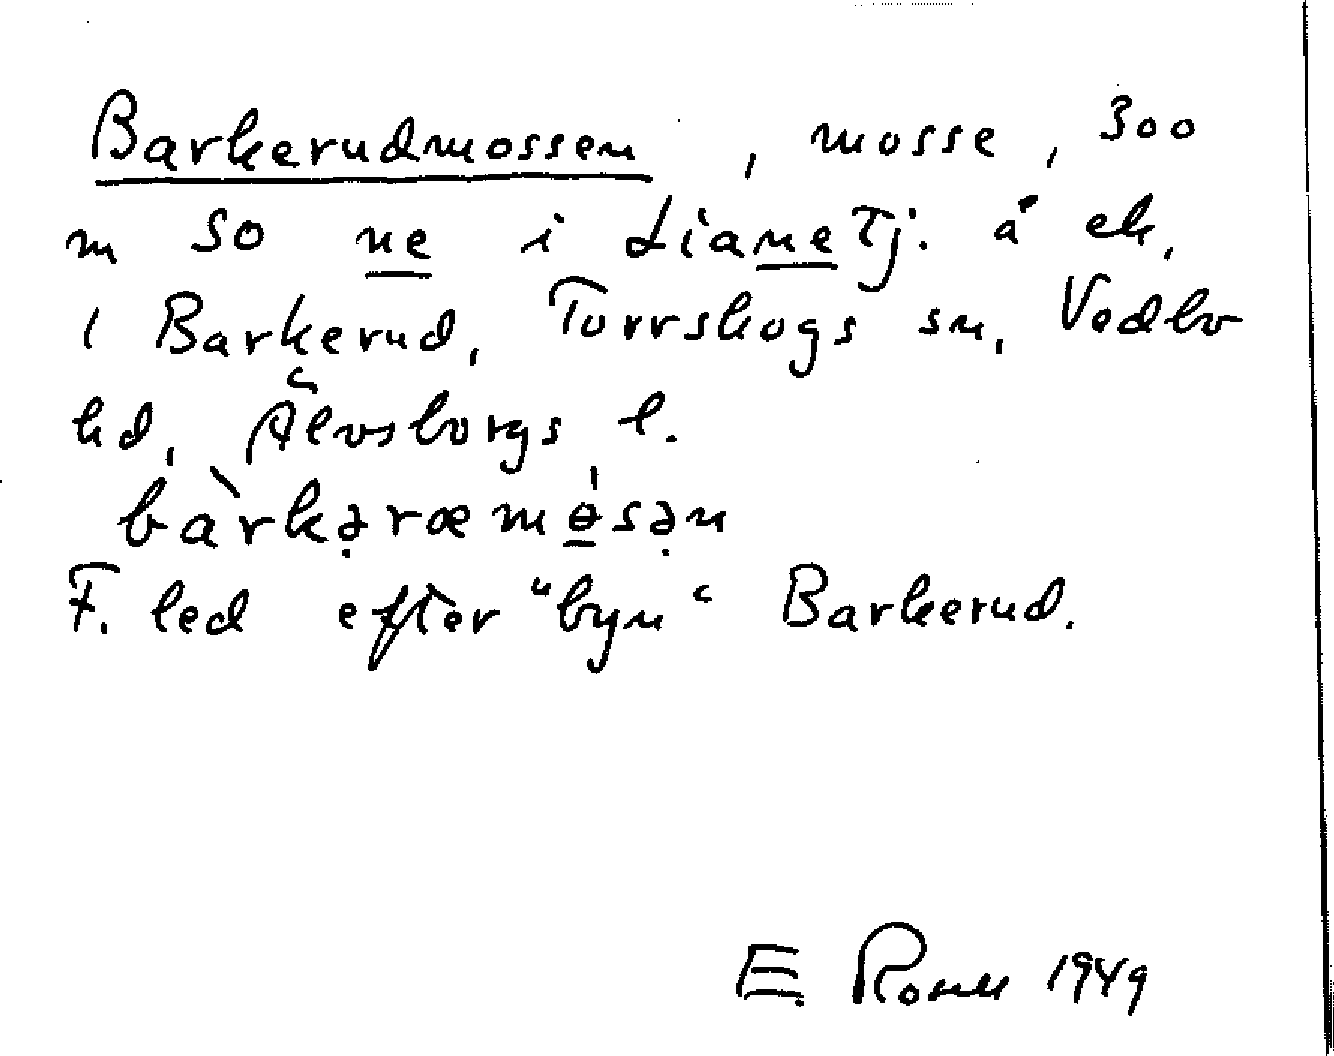 Barkerudmossen, mosse, 300
m SO ne i LianeTj. å ek,
i Barkerud, Torrskogs sn, Vedbo
hd, Älvsborgs l.
bàrkə̣ræmɵ̲́sə̣n
F. led efter "byn" Barkerud.
E. Rosell 1949